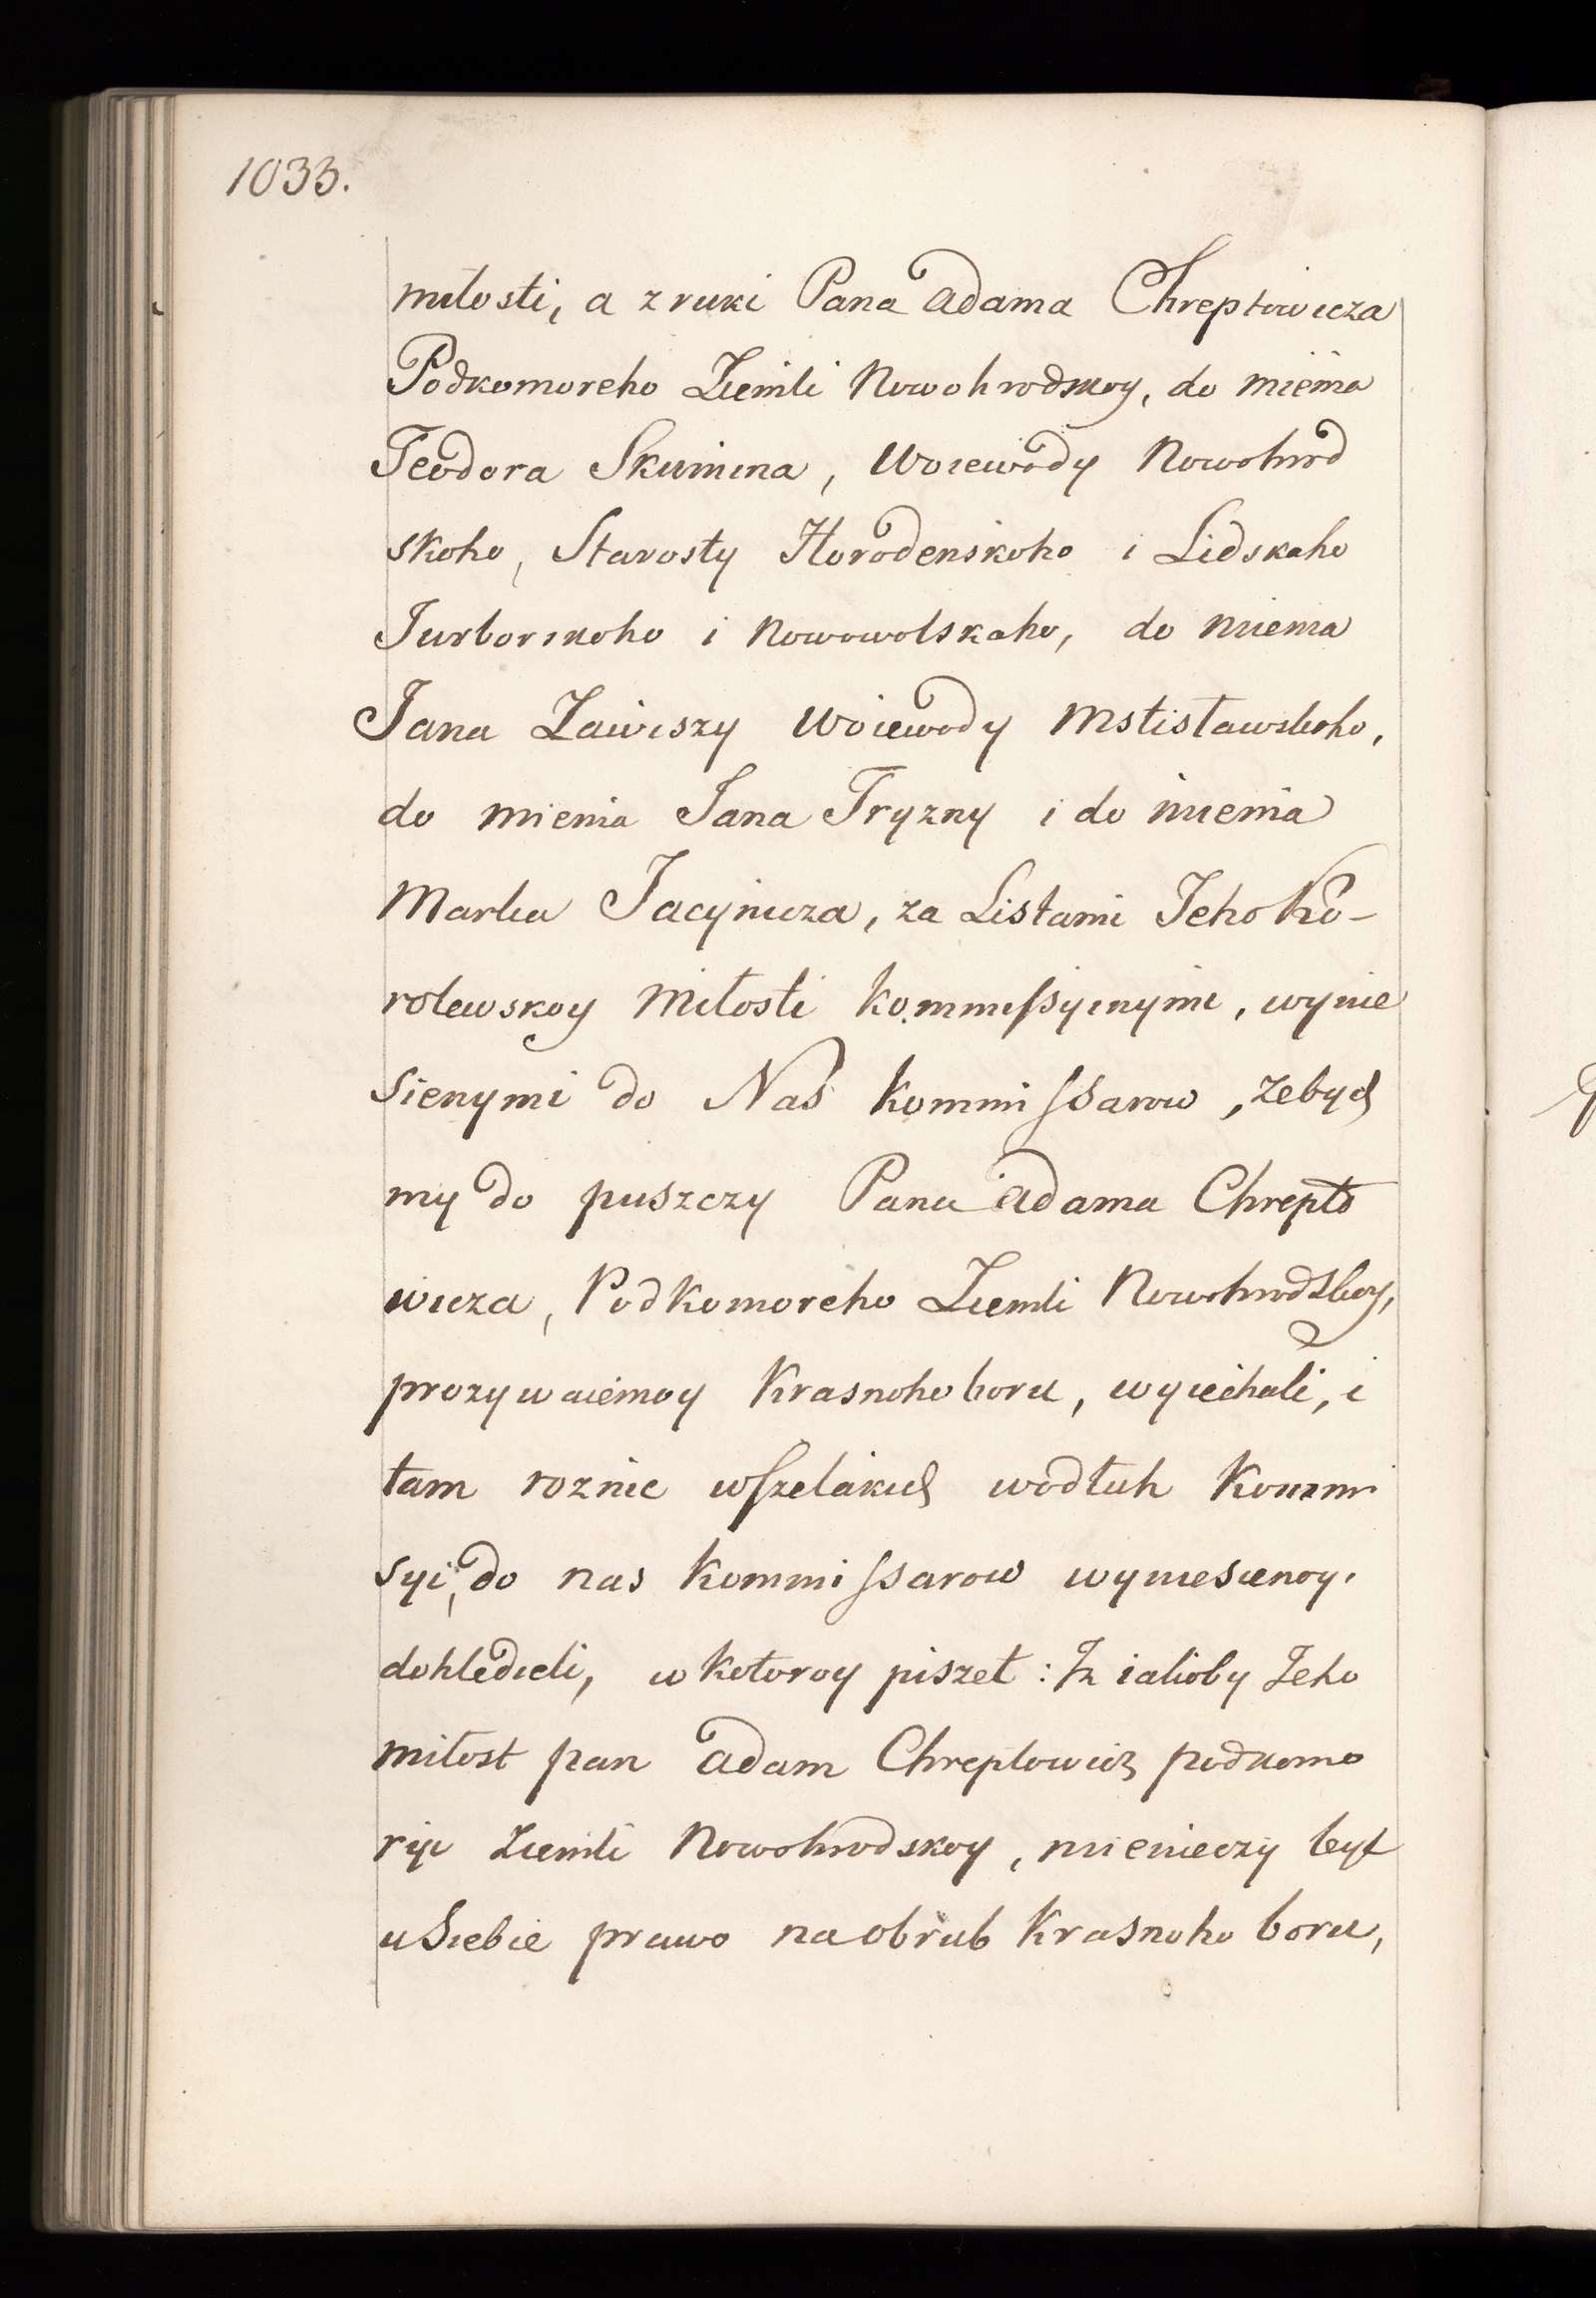 1033.
miłosti, a z ruki Pana Adama Chreptowicza
Podkomoreho Ziemli Nowohrodskoy, do mienia
Teodora Skumina, Woiewody Nowohrod
skoho, Starosty Horodenskoho i Lidskaho
Jurborskoho i Nowowolskaho, do mienia
Jana Zawiszy Woiewody Mstisławskoho,
do mienia Jana Tryzny i do mienia
Marka Jacynicza, za Listami Jeho Ko-
rolewskoy Miłosti kommissyinymi, wynie
sienymi do Nas Kommissarow, zebych
my do puszczy Pana Adama Chrepto
wicza, Podkomoreho Ziemli Nowohrodskoy,
prozywaiemoy Krasnohoboru, wyiechali, i
tam roznic wszelakich wodłuh Kommi
syi, do nas Kommissarow wyniesienoy,
dohledieli, w kotoroy piszet: Iz iakoby Jeho
miłost pan Adam Chreptowicz podkomo
ryi Ziemli Nowohrodskoy, mienieczy byt
u Siebie prawo na obrub Krasnoho boru,